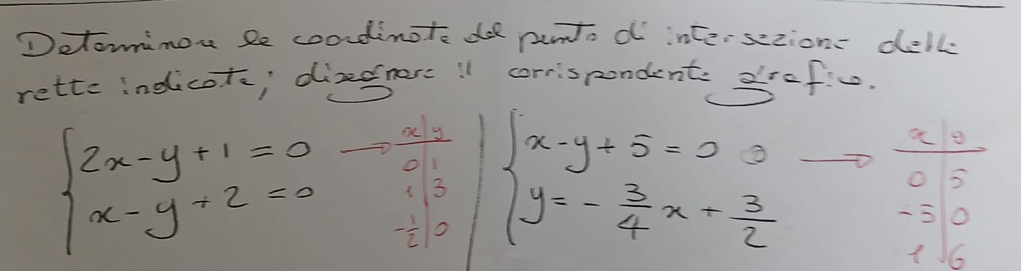 Determinare le coordinate del punto di intersezione delle
rette indicate; disegnare il corrispondente grafico.
{ 2x - y + 1 = 0 → x | y
0 | 1
1 | 3
-1/2 | 0
x - y + 2 = 0
{ x - y + 5 = 0 → x | y
0 | 5
-5 | 0
1 | 6
y = - 3/4 x + 3/2